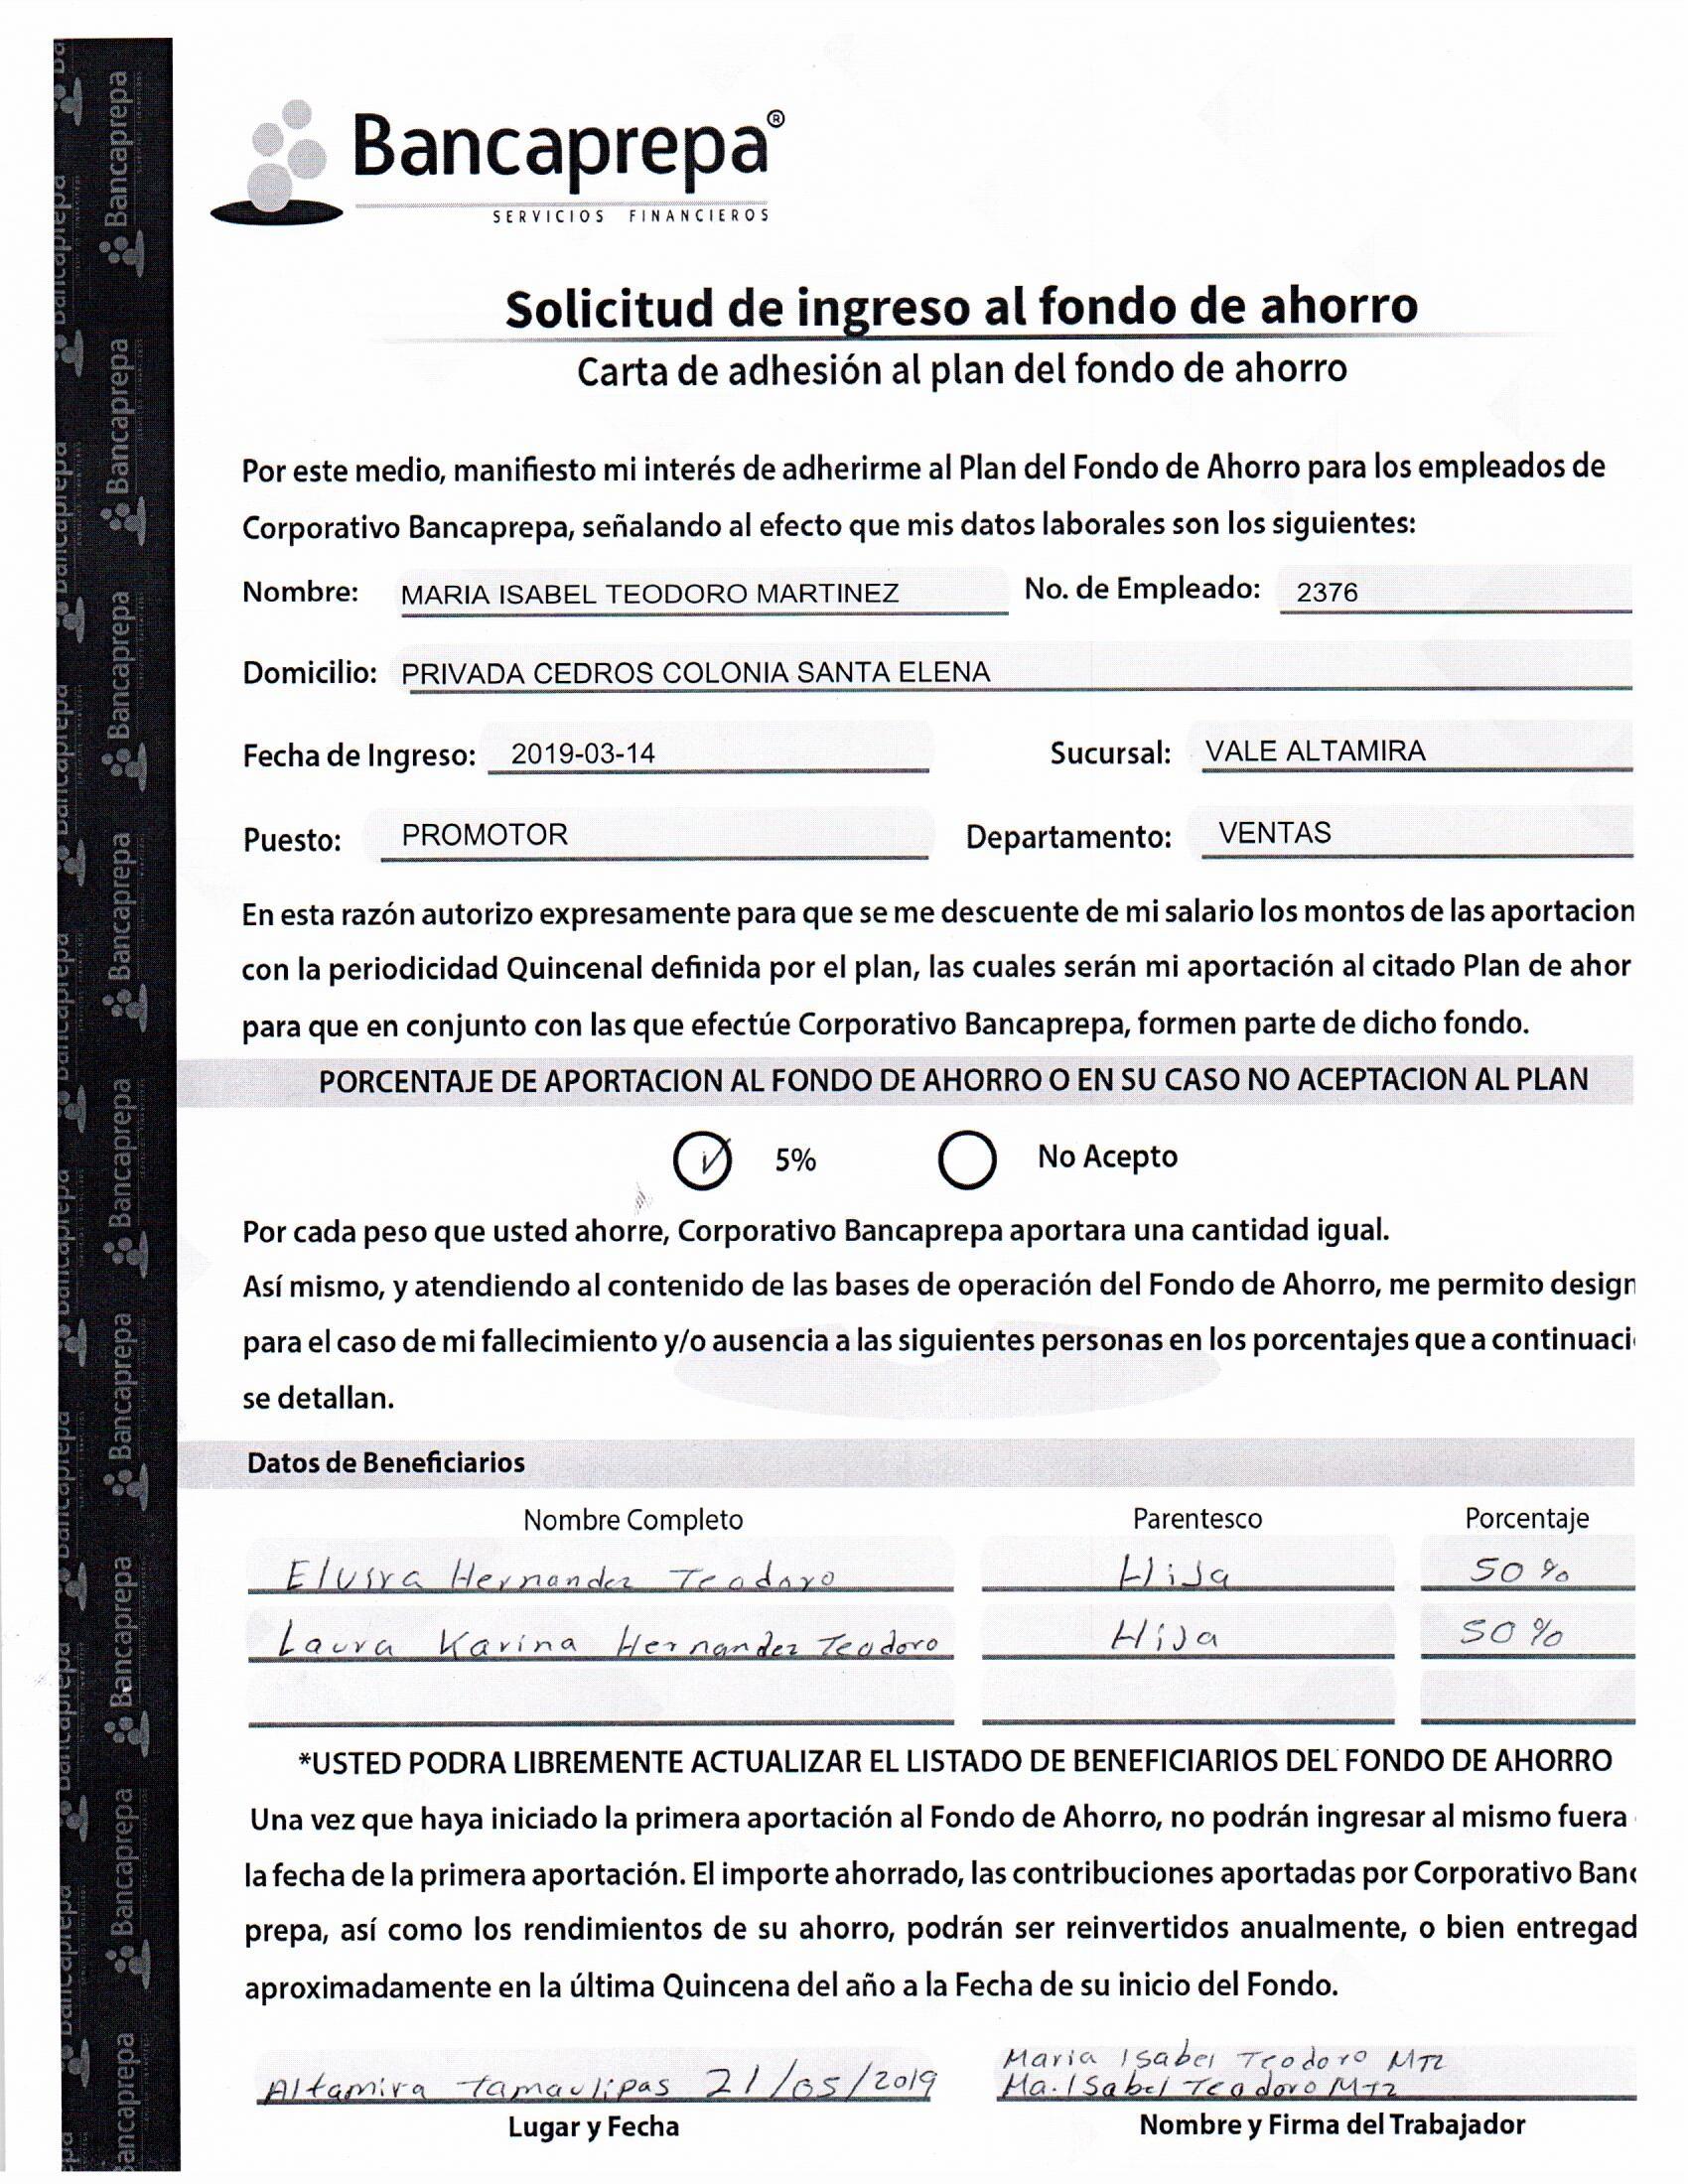 Bancaprepa®
SERVICIOS FINANCIEROS
Solicitud de ingreso al fondo de ahorro
Carta de adhesión al plan del fondo de ahorro
Por este medo, manifiesto mi interés de adherirme al Plan del Fondo de Ahorro para los empleados de
Corporativo Bancaprepa, señalando al efecto que mis datos laborales son los siguientes:
Nombre: MARIA ISABEL TEODORO MARTINEZ No. de Empleado: 2376
Domicilio: PRIVADA CEDROS COLONIA SANTA ELENA
Fecha de Ingreso: 2019-03-14 Sucursal: VALE ALTAMIRA
Puesto: PROMOTOR Departamento: VENTAS
En esta razón autorizo expresamente para que se me descuente de mi salario los montos de las aportacion
con la periodicidad Quincenal definida por el plan, las cuales serán mi aportación al citado Plan de ahor
para que en conjunto con las que efectúe Corporativo Bancaprepa, formen parte de dicho fondo.
PORCENTAJE DE APORTACION AL FONDO DE AHORRO O EN SU CASO NO ACEPTACION AL PLAN
✓ 5% No Acepto
Por cada peso que usted ahorre, Corporativo Bancaprepa aportara una cantidad igual.
Así mismo, y atendiendo al contenido de las bases de operación del Fondo de Ahorro, me permito design
para el caso de mi fallecimiento y/o ausencia a las siguientes personas en los porcentajes que a continuaci
se detallan.
Datos de Beneficiarios
Nombre Completo Parentesco Porcentaje
Elvira Hernandez Teodoro Hija 50%
Laura Karina Hernandez Teodoro Hija 50%
*USTED PODRA LIBREMENTE ACTUALIZAR EL LISTADO DE BENEFICIARIOS DEL FONDO DE AHORRO
Una vez que haya iniciado la primera aportación al Fondo de Ahorro, no podrán ingresar al mismo fuera
la fecha de la primera aportación. El importe ahorrado, las contribuciones aportadas por Corporativo Banc
prepa, así como los rendimientos de su ahorro, podrán ser reinvertidos anualmente, o bien entregad
aproximadamente en la última Quincena del año a la Fecha de su inicio del Fondo.
Altamira tamaulipas 21/05/2019
Maria Isabel Teodoro MTZ
Ma. Isabel Teodoro MTZ
Lugar y Fecha Nombre y Firma del Trabajador